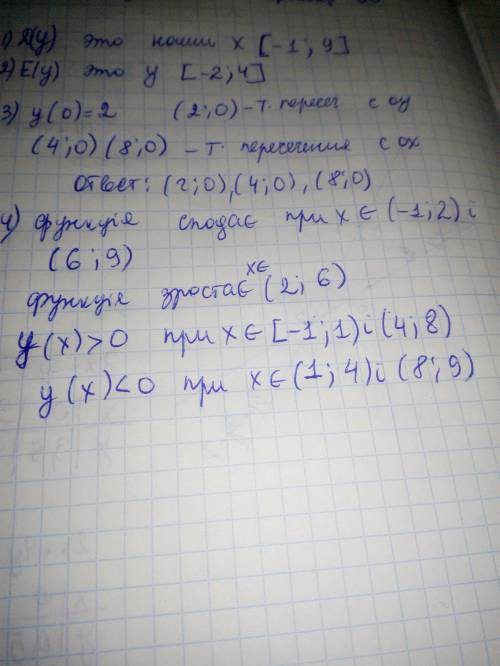 1) Д(у) это наши х [-1; 9]
2) Е(у) это у [-2; 4]
3) у(0)=2 (2;0) - т. пересеч с оу
(4;0) (8;0) - т. пересечения с ох
ответ: (2;0), (4;0), (8;0)
4) функція спадає при х ∈ (-1; 2) і
(6; 9)
функція зростає х∈ (2; 6)
у(х)>0 при х ∈ [-1; 1) і (4; 8)
у(х)<0 при х ∈ (1; 4) і (8; 9)